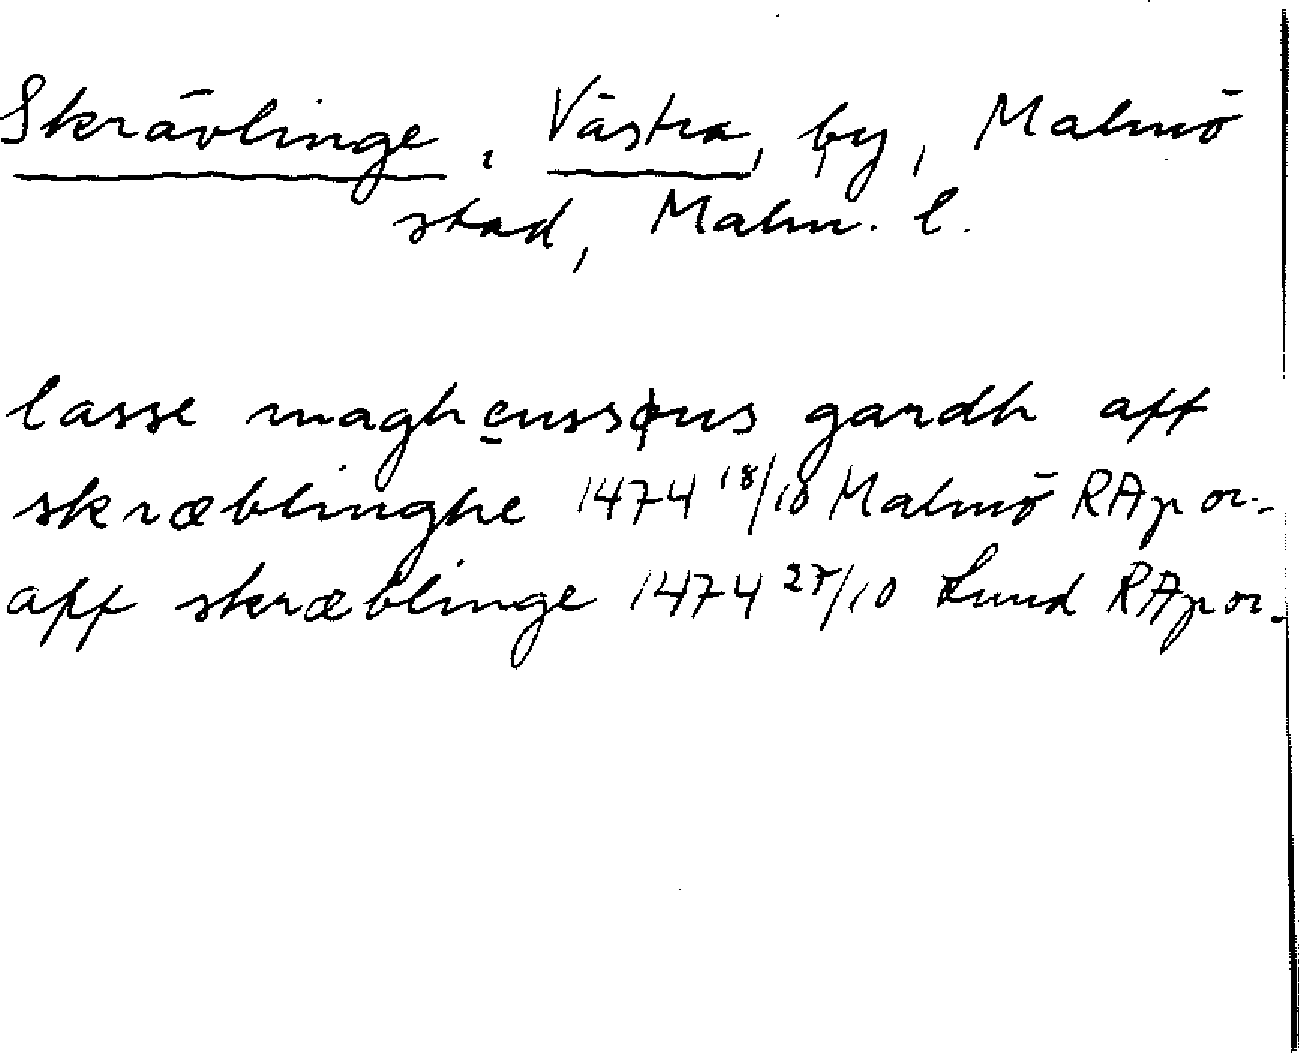 Skrävlinge, Västra, by, Malmö
stad, Malm. l.
lasse maghenssøns gardh aff
skræblinghe 1474 18/10 Malmö RAp or.
aff skræblinge 1474 27/10 Lund RAp or.